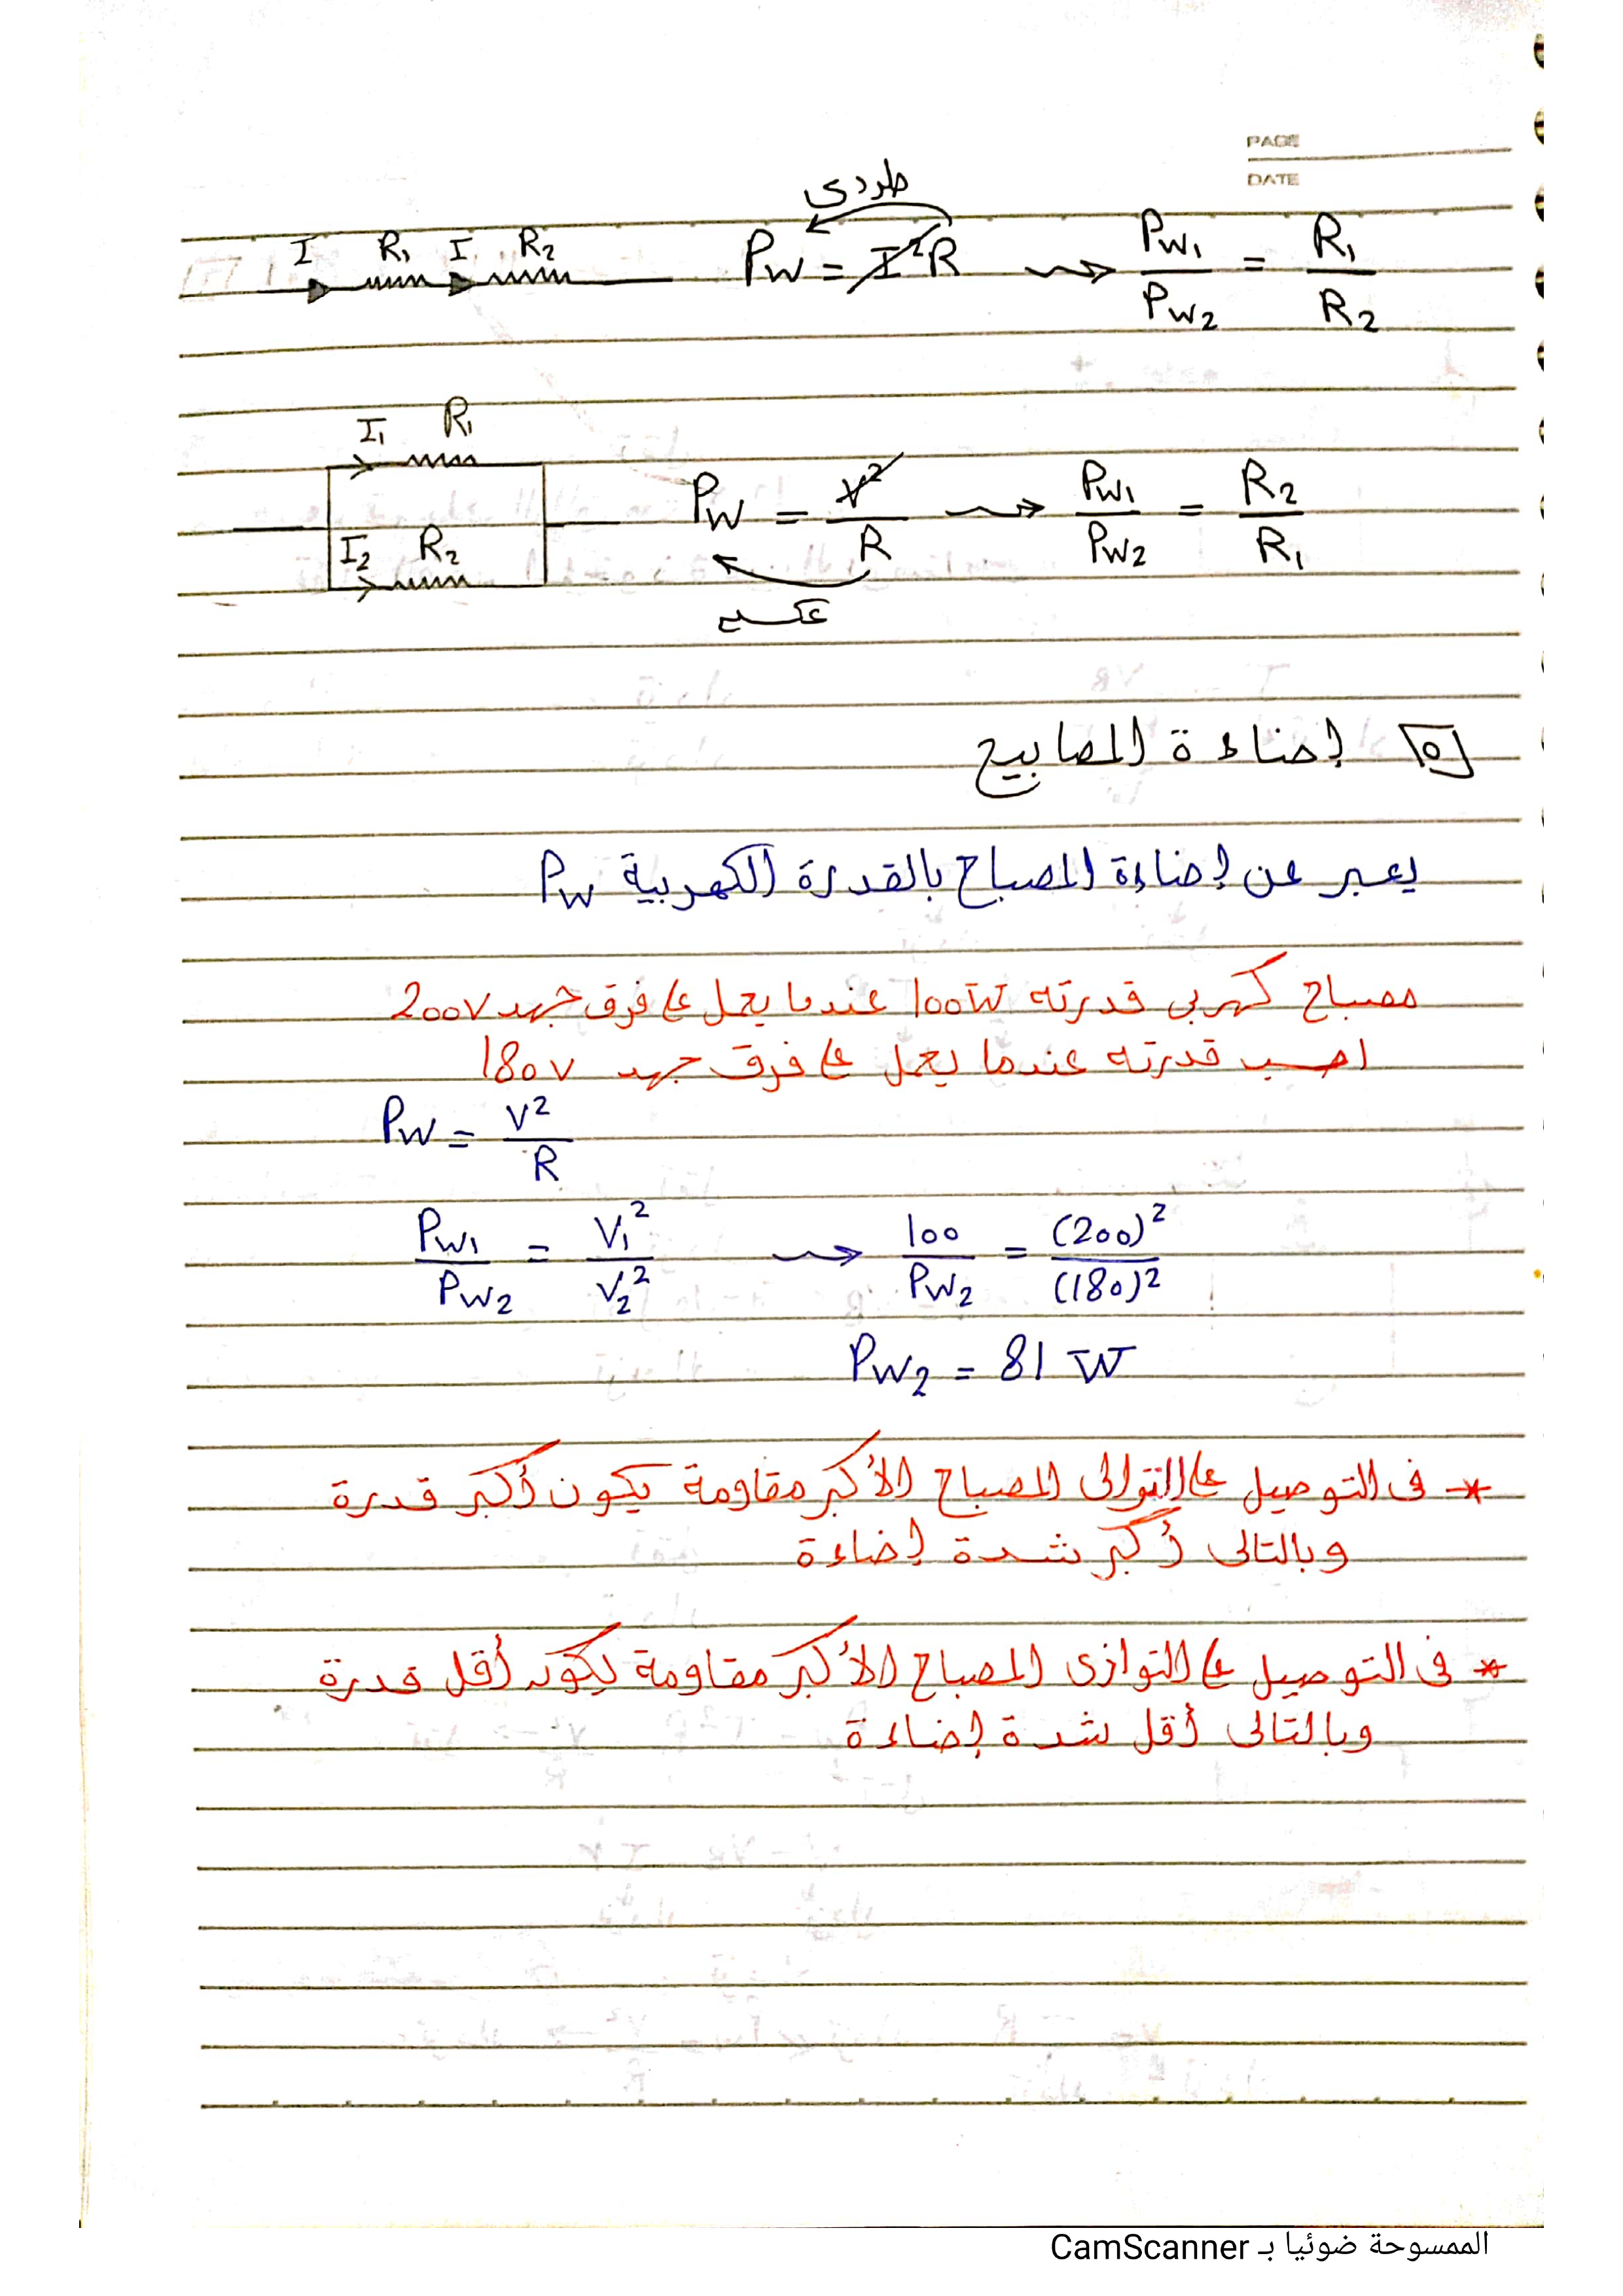 PAGE
DATE
طردى
I R₁ I R₂
Pw = I²R ⇝ Pw₁/Pw₂ = R₁/R₂
I₁ R₁
I₂ R₂
Pw = V²/R ⇝ Pw₁/Pw₂ = R₂/R₁
عكسي
٥ إضاءة المصابيح
يعبر عن إضاءة المصباح بالقدرة الكهربية Pw
مصباح كهربى قدرته 100W عندما يعمل على فرق جهد 200V
احسب قدرته عندما يعمل على فرق جهد 180V
Pw = V²/R
Pw₁/Pw₂ = V₁²/V₂² ⇝ 100/Pw₂ = (200)²/(180)²
Pw₂ = 81 W
* فى التوصيل على التوالى المصباح الأكبر مقاومة يكون أكبر قدرة
وبالتالى أكبر شدة إضاءة
* فى التوصيل على التوازى المصباح الأكبر مقاومة يكون أقل قدرة
وبالتالى أقل شدة إضاءة
الممسوحة ضوئيا بـ CamScanner